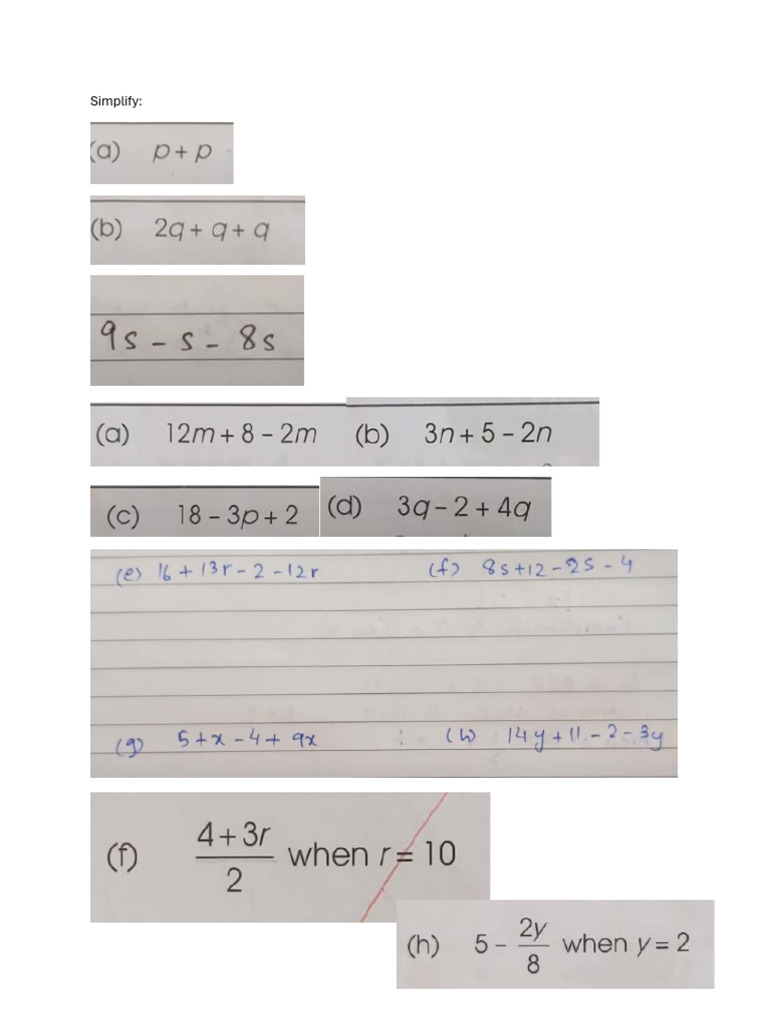 Simplify:
(a) p + p
(b) 2q + q + q
9s - s - 8s
(a) 12m + 8 - 2m (b) 3n + 5 - 2n
(c) 18 - 3p + 2 (d) 3q - 2 + 4q
(e) 16 + 13r - 2 - 12r (f) 8s + 12 - 2s - 4
(g) 5 + x - 4 + 9x (h) 14y + 11 - 2 - 3y
(f) (4 + 3r)/2 when r = 10
(h) 5 - 2y/8 when y = 2